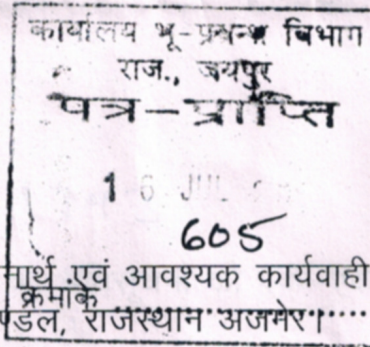 कार्यालय भू-प्रबन्ध विभाग
राज., जयपुर
पत्र-प्राप्ति
16 JUL
605
मार्थ एवं आवश्यक कार्यवाही
क्रमांक ..........
ण्डल, राजस्थान अजमेर।